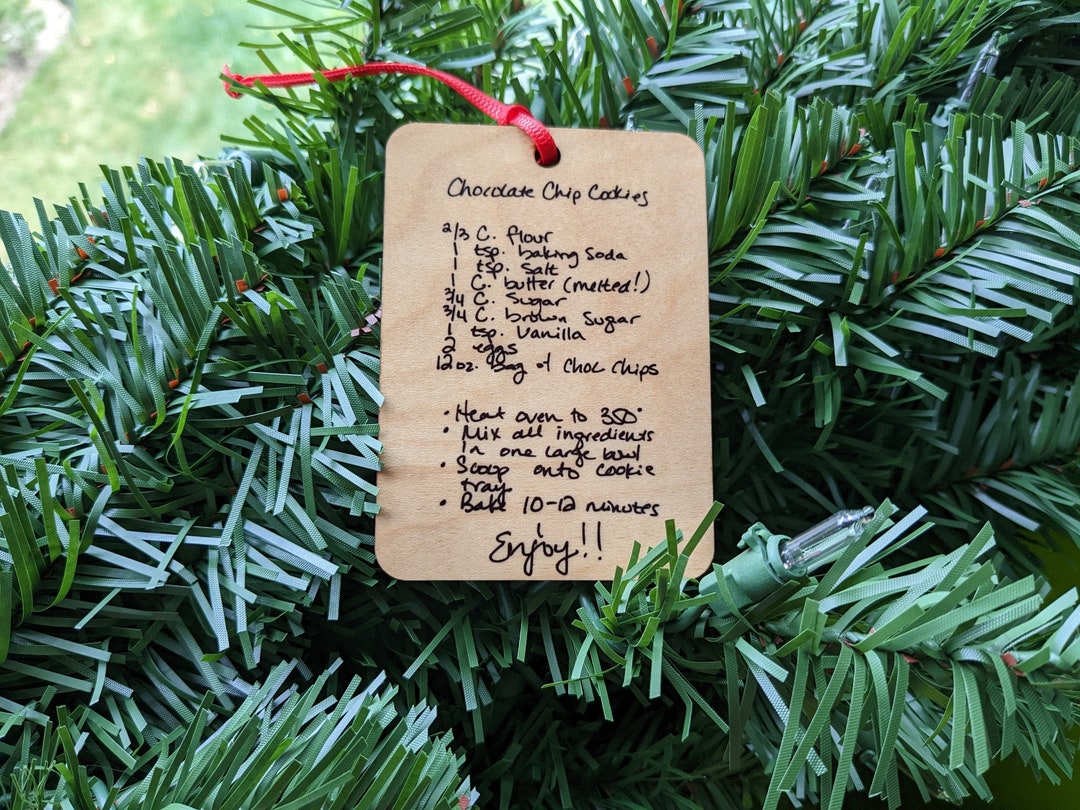 Chocolate Chip Cookies
2/3 C. flour
1 tsp. baking soda
1 tsp. salt
1 C. butter (melted!)
3/4 C. sugar
3/4 C. brown sugar
1 tsp. vanilla
2 eggs
12 oz. Bag of Choc Chips
• Heat oven to 350°
• Mix all ingredients
in one large bowl
• Scoop onto cookie
tray
• Bake 10-12 minutes
Enjoy!!